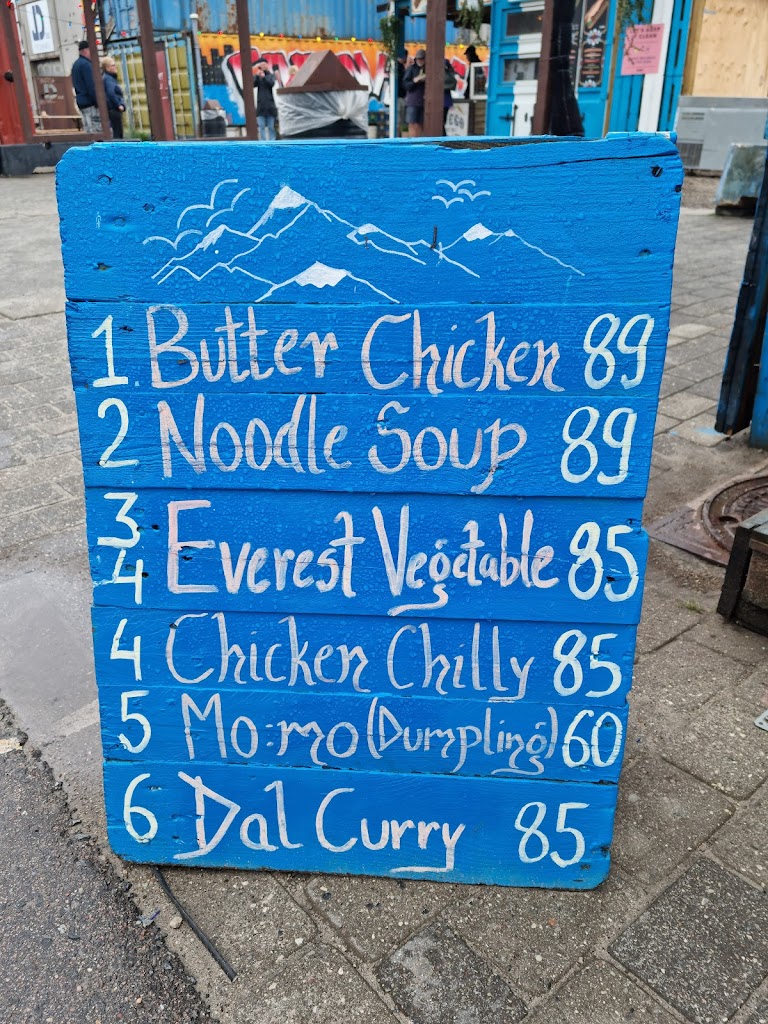 1 Butter Chicken 89
2 Noodle Soup 89
3
4 Everest Vegetable 85
4 Chicken Chilly 85
5 Mo:mo (Dumpling) 60
6 Dal Curry 85